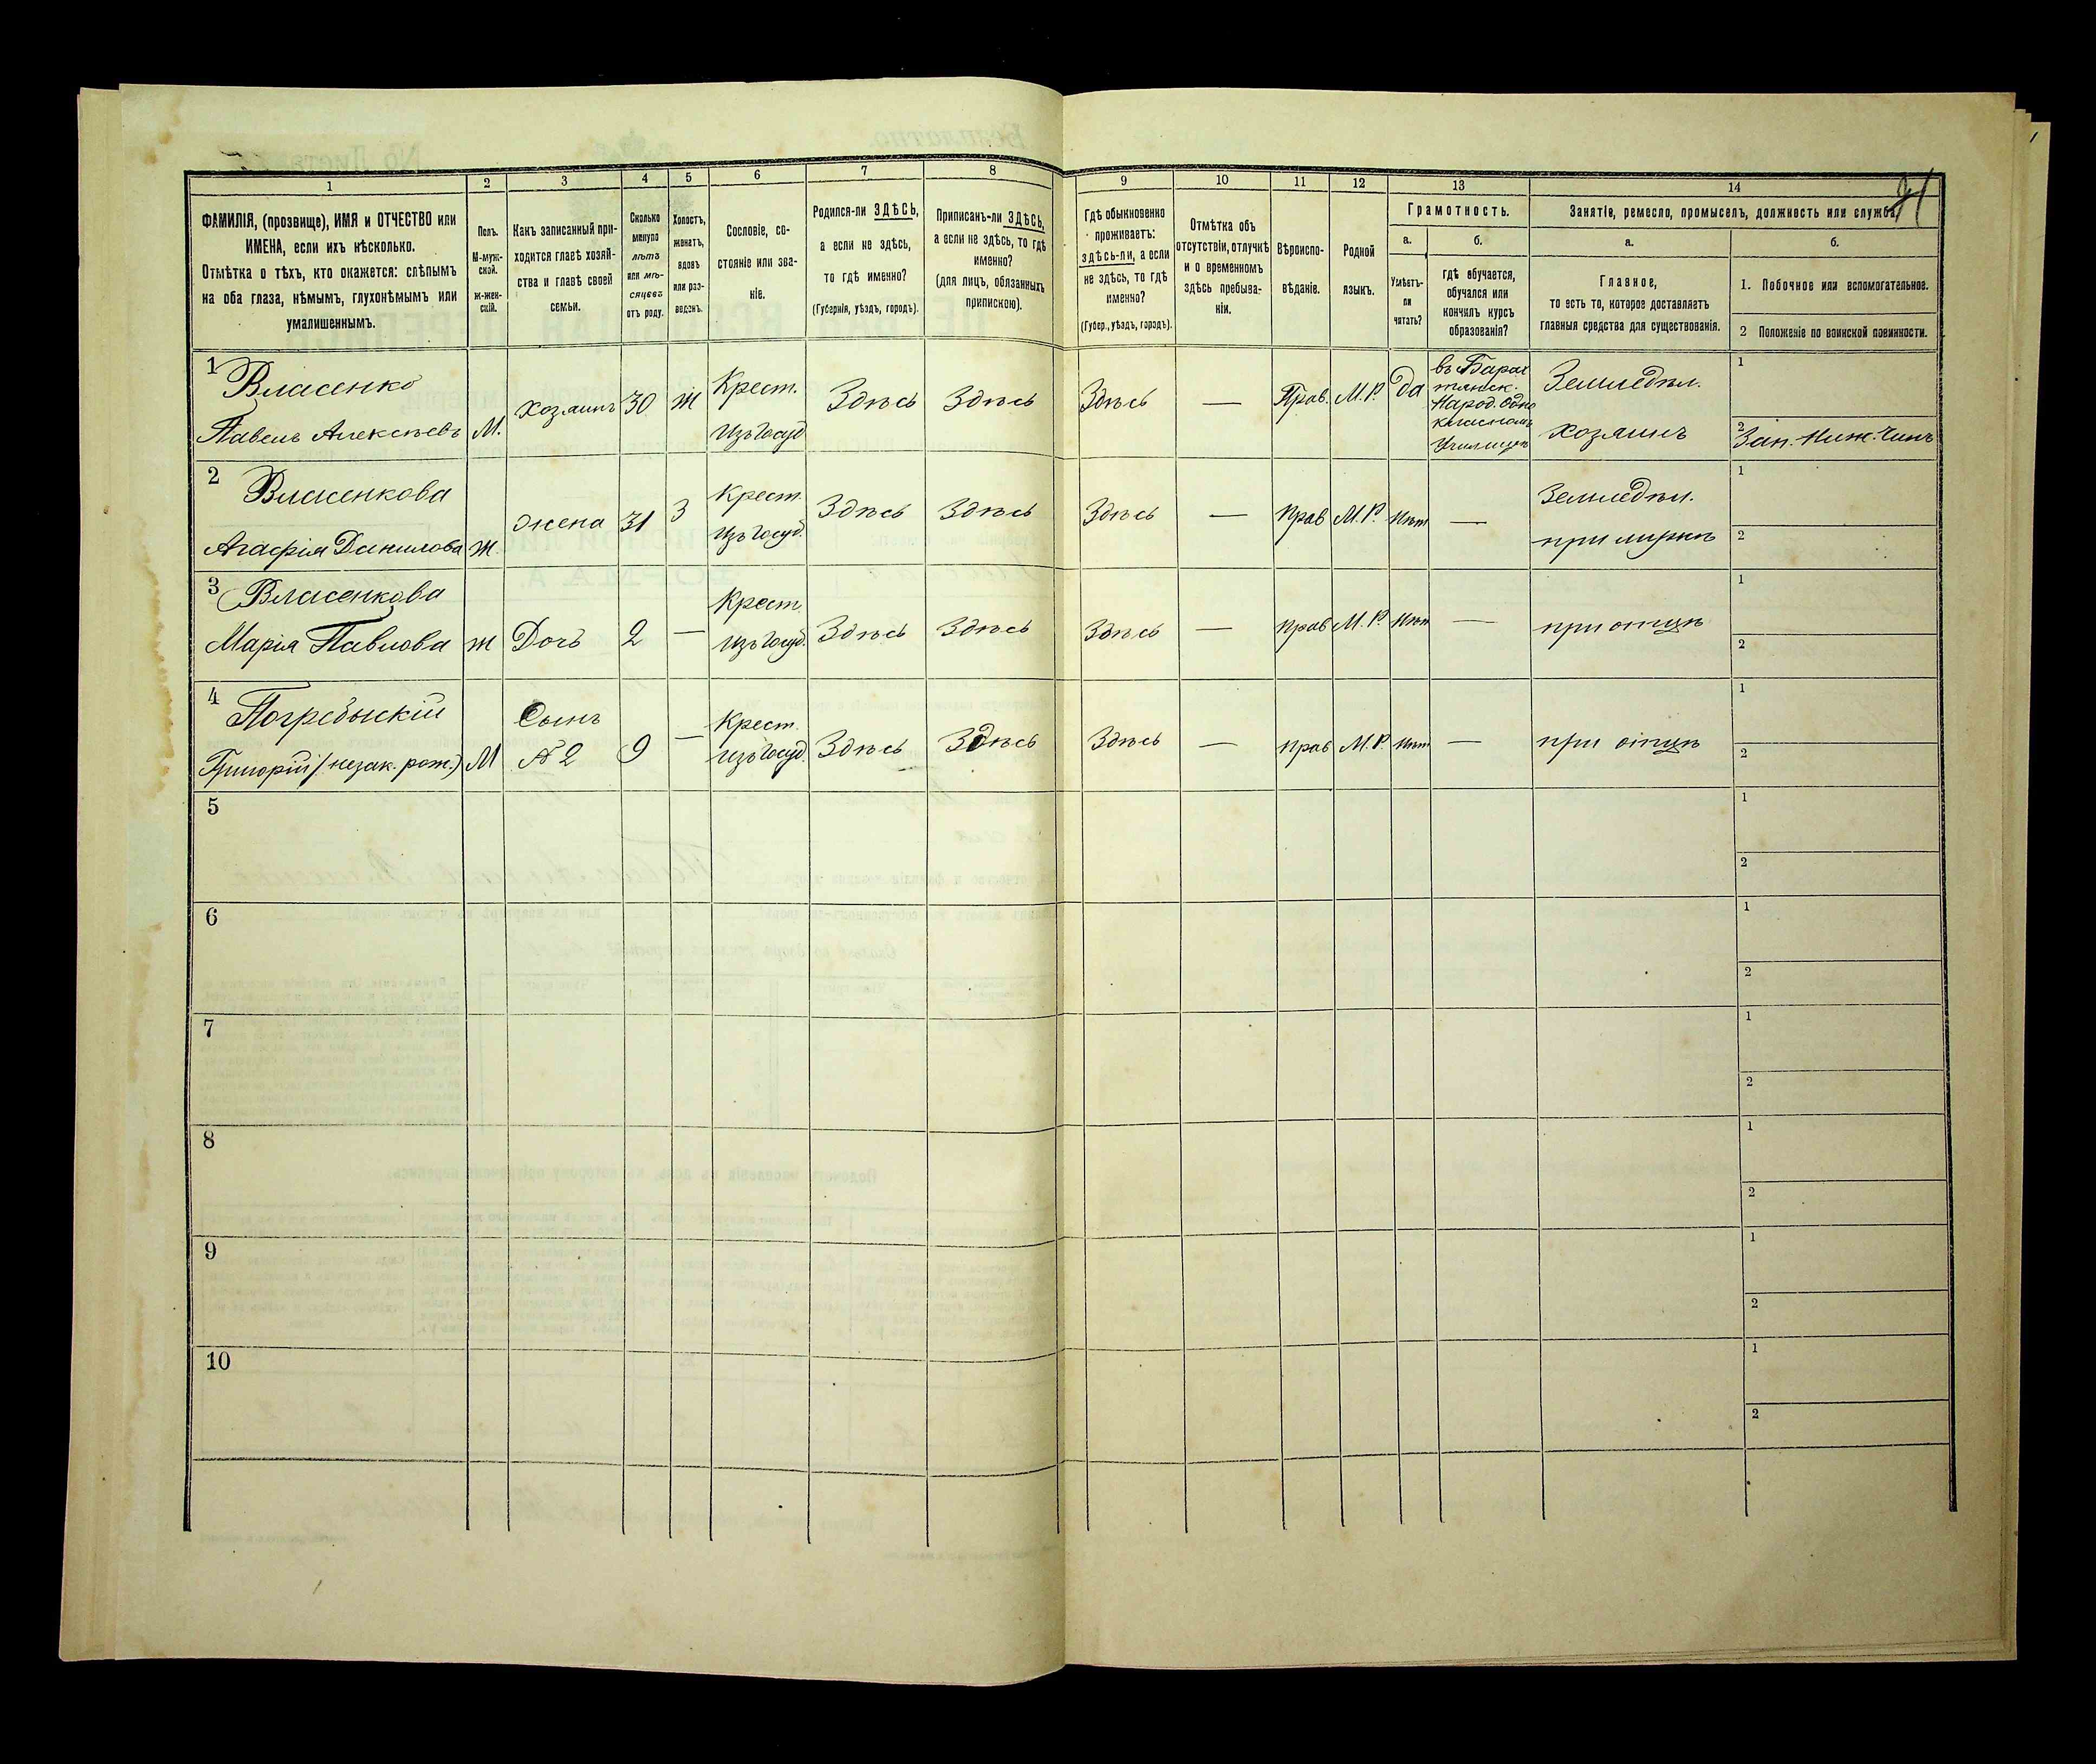 1 2 3 4 5 6 7 8 9 10 11 12 13 14
ФАМИЛІЯ, (прозвище), ИМЯ и ОТЧЕСТВО или
ИМЕНА, если ихъ нѣсколько.
Отмѣтка о тѣхъ, кто окажется: слѣпымъ
на оба глаза, нѣмымъ, глухонѣмымъ или
умалишеннымъ.
Полъ.
М-муж-
ской.
ж-жен-
скій.
Какъ записанный при-
ходится главѣ хозяй-
ства и главѣ своей
семьи.
Сколько
минуло
лѣтъ
или мѣ-
сяцевъ
отъ роду.
Холостъ,
женатъ,
вдовъ
или раз-
веденъ.
Сословіе, со-
стояніе или зва-
ніе.
Родился-ли ЗДѢСЬ,
а если не здѣсь,
то гдѣ именно?
(Губернія, уѣздъ, городъ).
Приписанъ-ли ЗДѢСЬ,
а если не здѣсь, то гдѣ
именно?
(для лицъ, обязанныхъ
припискою).
Гдѣ обыкновенно
проживаетъ:
здѣсь-ли, а если
не здѣсь, то гдѣ
именно?
(Губер., уѣздъ, городъ).
Отмѣтка объ
отсутствіи, отлучкѣ
и о временномъ
здѣсь пребыва-
ніи.
Вѣроиспо-
вѣданіе.
Родной
языкъ.
Грамотность.
а.
Умѣетъ-
ли
читать?
б.
гдѣ обучается,
обучался или
кончилъ курсъ
образованія?
Занятіе, ремесло, промыселъ, должность или служба.
а.
Главное,
то есть то, которое доставляетъ
главныя средства для существованія.
б.
1. Побочное или вспомогательное.
2 Положеніе по воинской повинности.
1 Власенко
Павелъ Алексѣевъ
М.
хозяинъ
30
ж
Крест.
изъ Госуд
Здѣсь
Здѣсь
Здѣсь
—
Прав.
М.Р.
да
Народ. одно
Училищѣ
Земледѣл.
хозяинъ
1
2 Зап. Ниж. Чинъ
2 Власенкова
Агафія Данилова
ж.
жена
31
З
Крест.
изъ Госуд.
Здѣсь
Здѣсь
Здѣсь
—
прав
М.Р.
нѣт
—
Земледѣл.
при мужѣ
1
2
3 Власенкова
Марія Павлова
ж
Дочь
2
—
Крест.
изъ Госуд.
Здѣсь
Здѣсь
Здѣсь
—
прав
М.Р.
нѣт
—
при отцѣ
1
2
4 Погребыскій
Григорій (незак. рож.)
М
Сынъ
№ 2
9
—
Крест.
изъ Госуд.
Здѣсь
Здѣсь
Здѣсь
—
прав
М.Р.
нѣт
—
при отцѣ
1
2
5
1
2
6
1
2
7
1
2
8
1
2
9
1
2
10
1
2